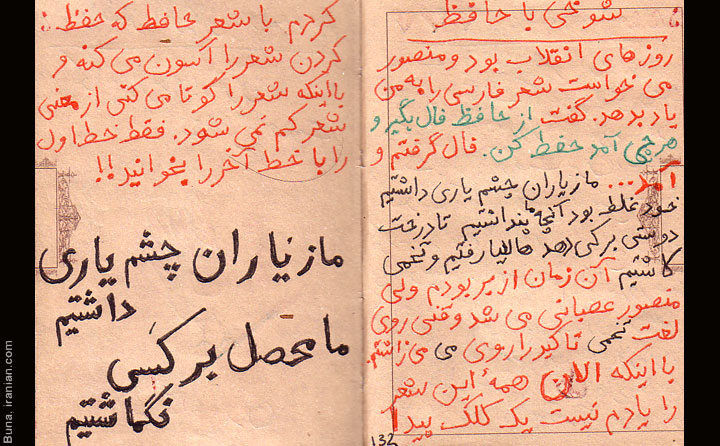 شوخی با حافظ
روزهای انقلاب بود و منصور
می خواست شعر فارسی را به من
یاد بدهد. گفت از حافظ فال بگیر و
هرچی آمد حفظ کن. فال گرفتم و
آمد... ما ز یاران چشم یاری داشتیم
خود غلط بود آنچه ما پنداشتیم تا درخت
دوستی بر کی دهد حالیا رفتیم و تخمی
کاشتیم آن زمان از بر بودم ولی
منصور عصبانی می شد وقتی روی
لغت تخمی تاکید را روی می می زاشتم.
با اینکه الان همهٔ این شعر
را یادم نیست یک کلک پیدا
132
کردم با شعر حافظ که حفظ
کردن شعر را آسون می کنه و
با اینکه شعر را کوتا می کنی از معنی
شعر کم نمی شود. فقط خط اول
را با خط آخر را بخوانید!!
ما ز یاران چشم یاری
داشتیم
ما محصل بر کَسی
نگماشتیم
Buna, iranian.com